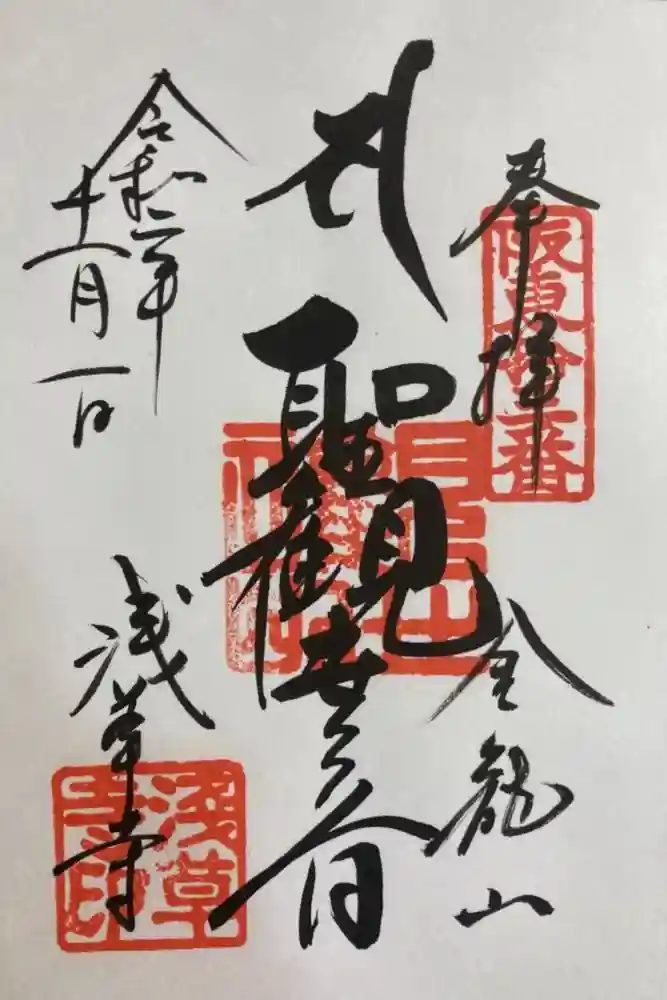 奉拝
阪東拾三番
金龍山
聖観世音
令和二年
十一月一日
浅草寺
淺草寺印